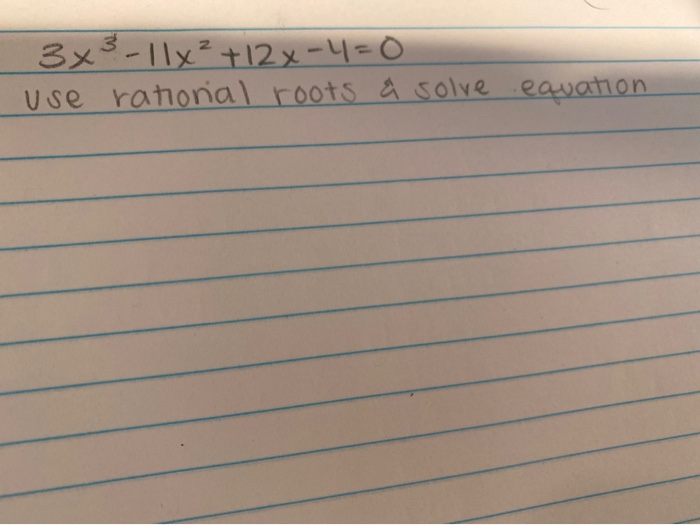 3x³-11x²+12x-4=0
use rational roots & solve equation